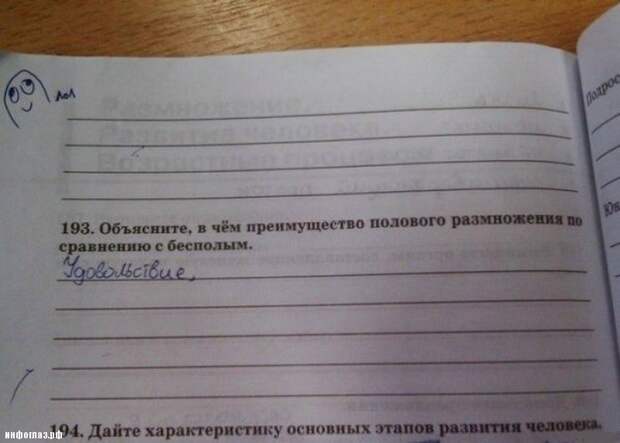 лол
Подрос
193. Объясните, в чём преимущество полового размножения по
сравнению с бесполым.
Удовольствие,
194. Дайте характеристику основных этапов развития человека.
инфоглаз.рф